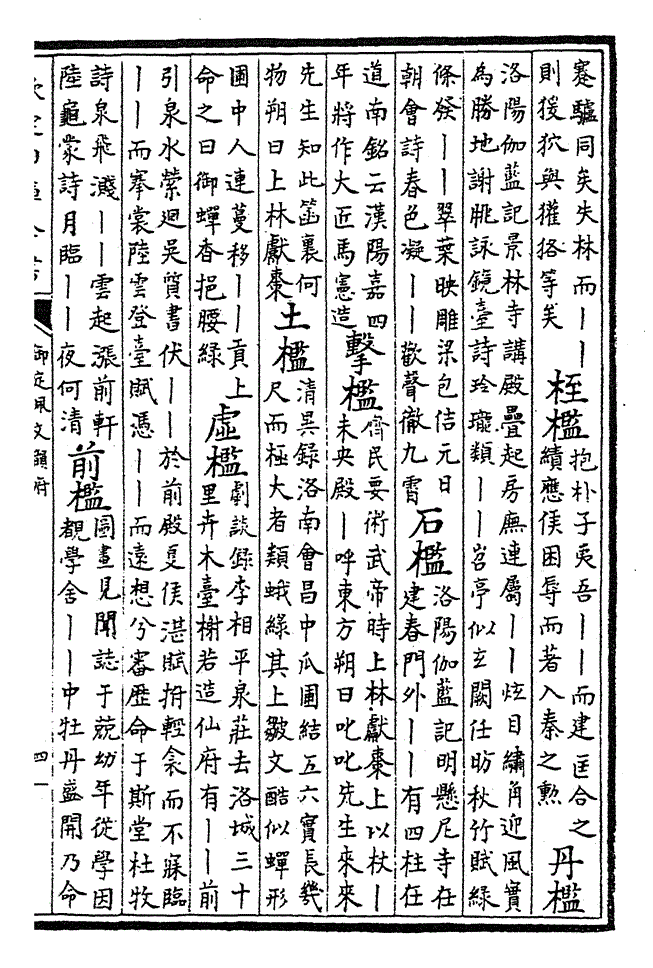 蹇驢同矣失林而丨丨
則猨狖與玃狢等矣
桎檻
抱朴子夷吾丨丨而建匡合之
績應侯困辱而著入秦之勲
丹檻
洛陽伽藍記景林寺講殿疊起房廡連屬丨丨炫目繡角迎風實
為勝地謝朓詠鏡臺詩玲瓏類丨丨岧亭似玄闕任昉秋竹賦緑
條發丨丨翠葉映雕梁包佶元日
朝會詩春色凝丨丨歡聲徹九霄
石檻
洛陽伽藍記明懸尼寺在
建春門外丨丨有四柱在
道南銘云漢陽嘉四
年將作大匠馬憲造
擊檻
齊民要術武帝時上林獻棗上以杖丨
未央殿丨呼東方朔曰叱叱先生來來
先生知此箧裏何
物朔曰上林獻棗
土檻
清異録洛南會昌中瓜圃結五六實長幾
尺而極大者類蛾緑其上皺文酷似蟬形
圃中人連蔓移丨丨貢上
命之曰御蟬香挹腰緑
虛檻
劇談録李相平泉莊去洛城三十
里卉木臺榭若造仙府有丨丨前
引泉水縈迴吳質書伏丨丨於前殿夏侯湛賦 輕衾而不寐臨
丨丨而搴裳陸雲登臺賦憑丨丨而遠想兮審歴命于斯堂杜牧
詩泉飛濺丨丨雲起漲前軒
陸龜蒙詩月臨丨丨夜何清
前檻
圖畫見聞誌于兢幼年從學因
覩學舍丨丨中牡丹盛開乃命
欽定四庫全書
御定佩文韻府
四